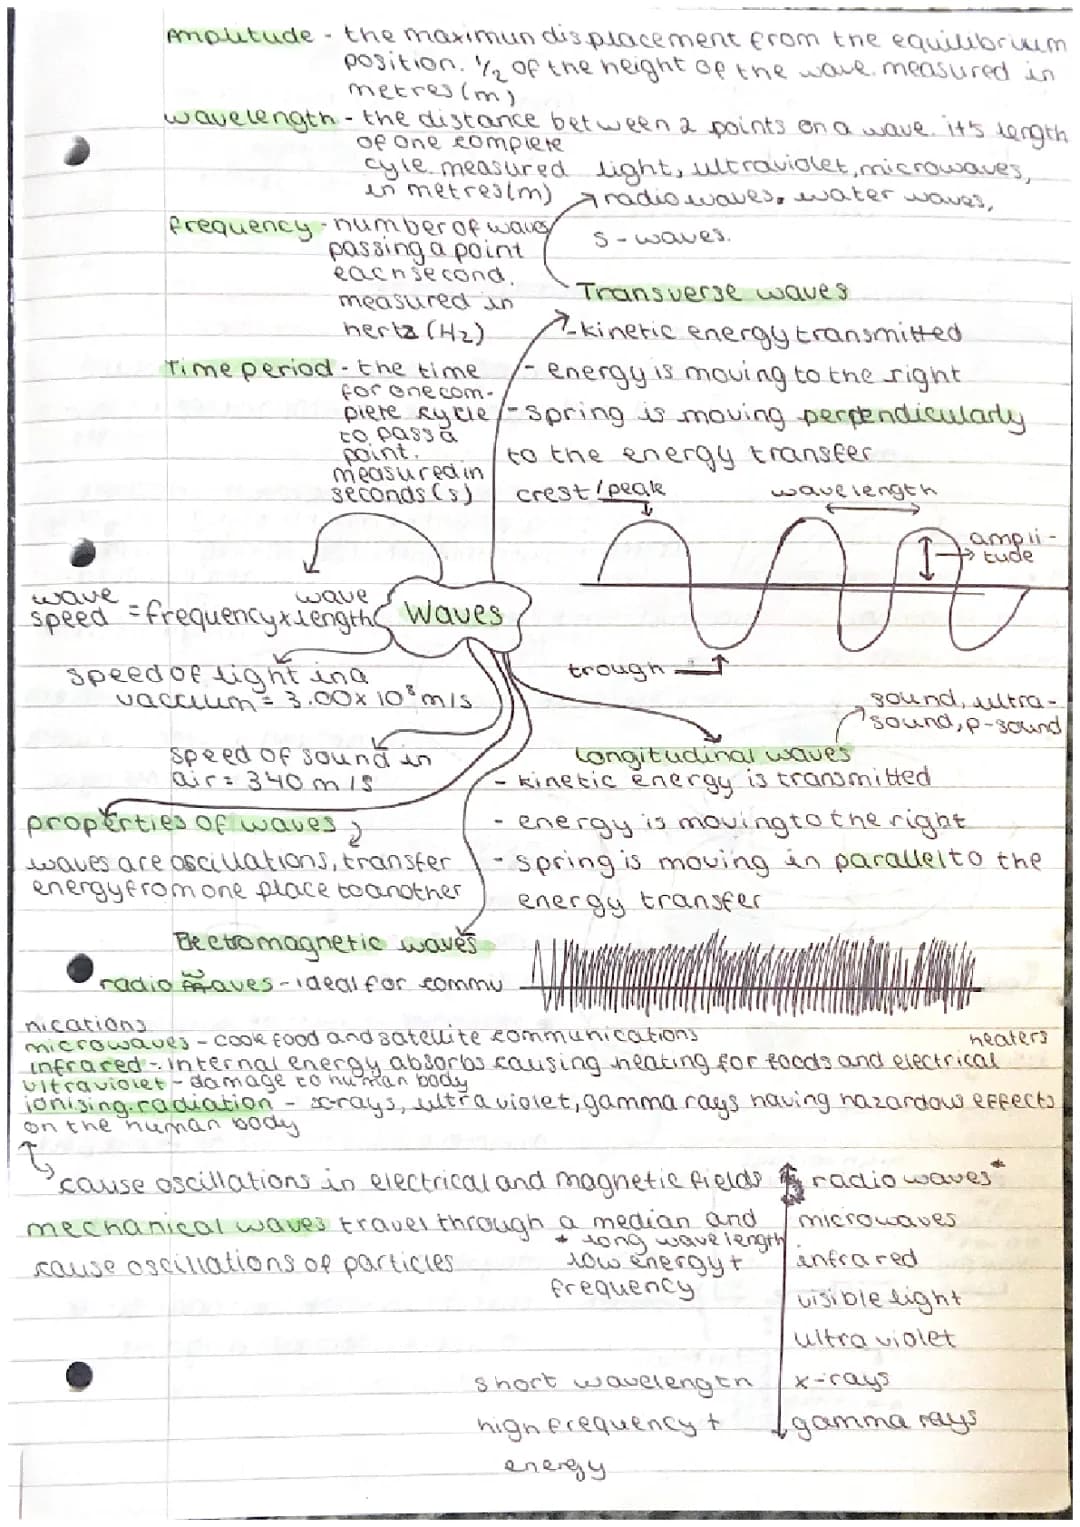 Amplitude - the maximun displacement from the equilibrium
position. 1/2 of the height of the wave. measured in
metres (m)
wavelength - the distance between 2 points on a wave. it's length
of one complete
cycle. measured
in metres (m)
light, ultraviolet, microwaves,
radio waves, water waves,
s-waves.
frequency - number of waves
passing a point
each second.
measured in
hertz (Hz)
Transverse waves
- kinetic energy transmitted
- energy is moving to the right
- spring is moving perpendicularly
to the energy transfer
Time period - the time
for one com-
plete cycle
to pass a
point.
measured in
seconds (s)
crest/peak
wavelength
ampli-
tude
trough
Waves
wave speed = frequency x wave length
speed of light in a
vaccum = 3.00 x 10⁸ m/s
speed of sound in
air = 340 m/s
sound, ultra-
sound, p-sound
longitudinal waves
- kinetic energy is transmitted
- energy is moving to the right
- spring is moving in parallel to the
energy transfer
properties of waves
waves are oscillations, transfer
energy from one place to another
Electromagnetic waves
radio waves - ideal for commu
nications
microwaves - cook food and satellite communications
infrared - internal energy absorbs causing heating for foods and electrical heaters
ultraviolet - damage to human body
ionising radiation - x-rays, ultra violet, gamma rays having hazardow effects
on the human body
cause oscillations in electrical and magnetic fields
mechanical waves travel through a median and
cause oscillations of particles
* long wavelength
low energy +
frequency
radio waves*
microwaves
infrared
visible light
ultra violet
x-rays
gamma rays
short wavelength
high frequency +
energy